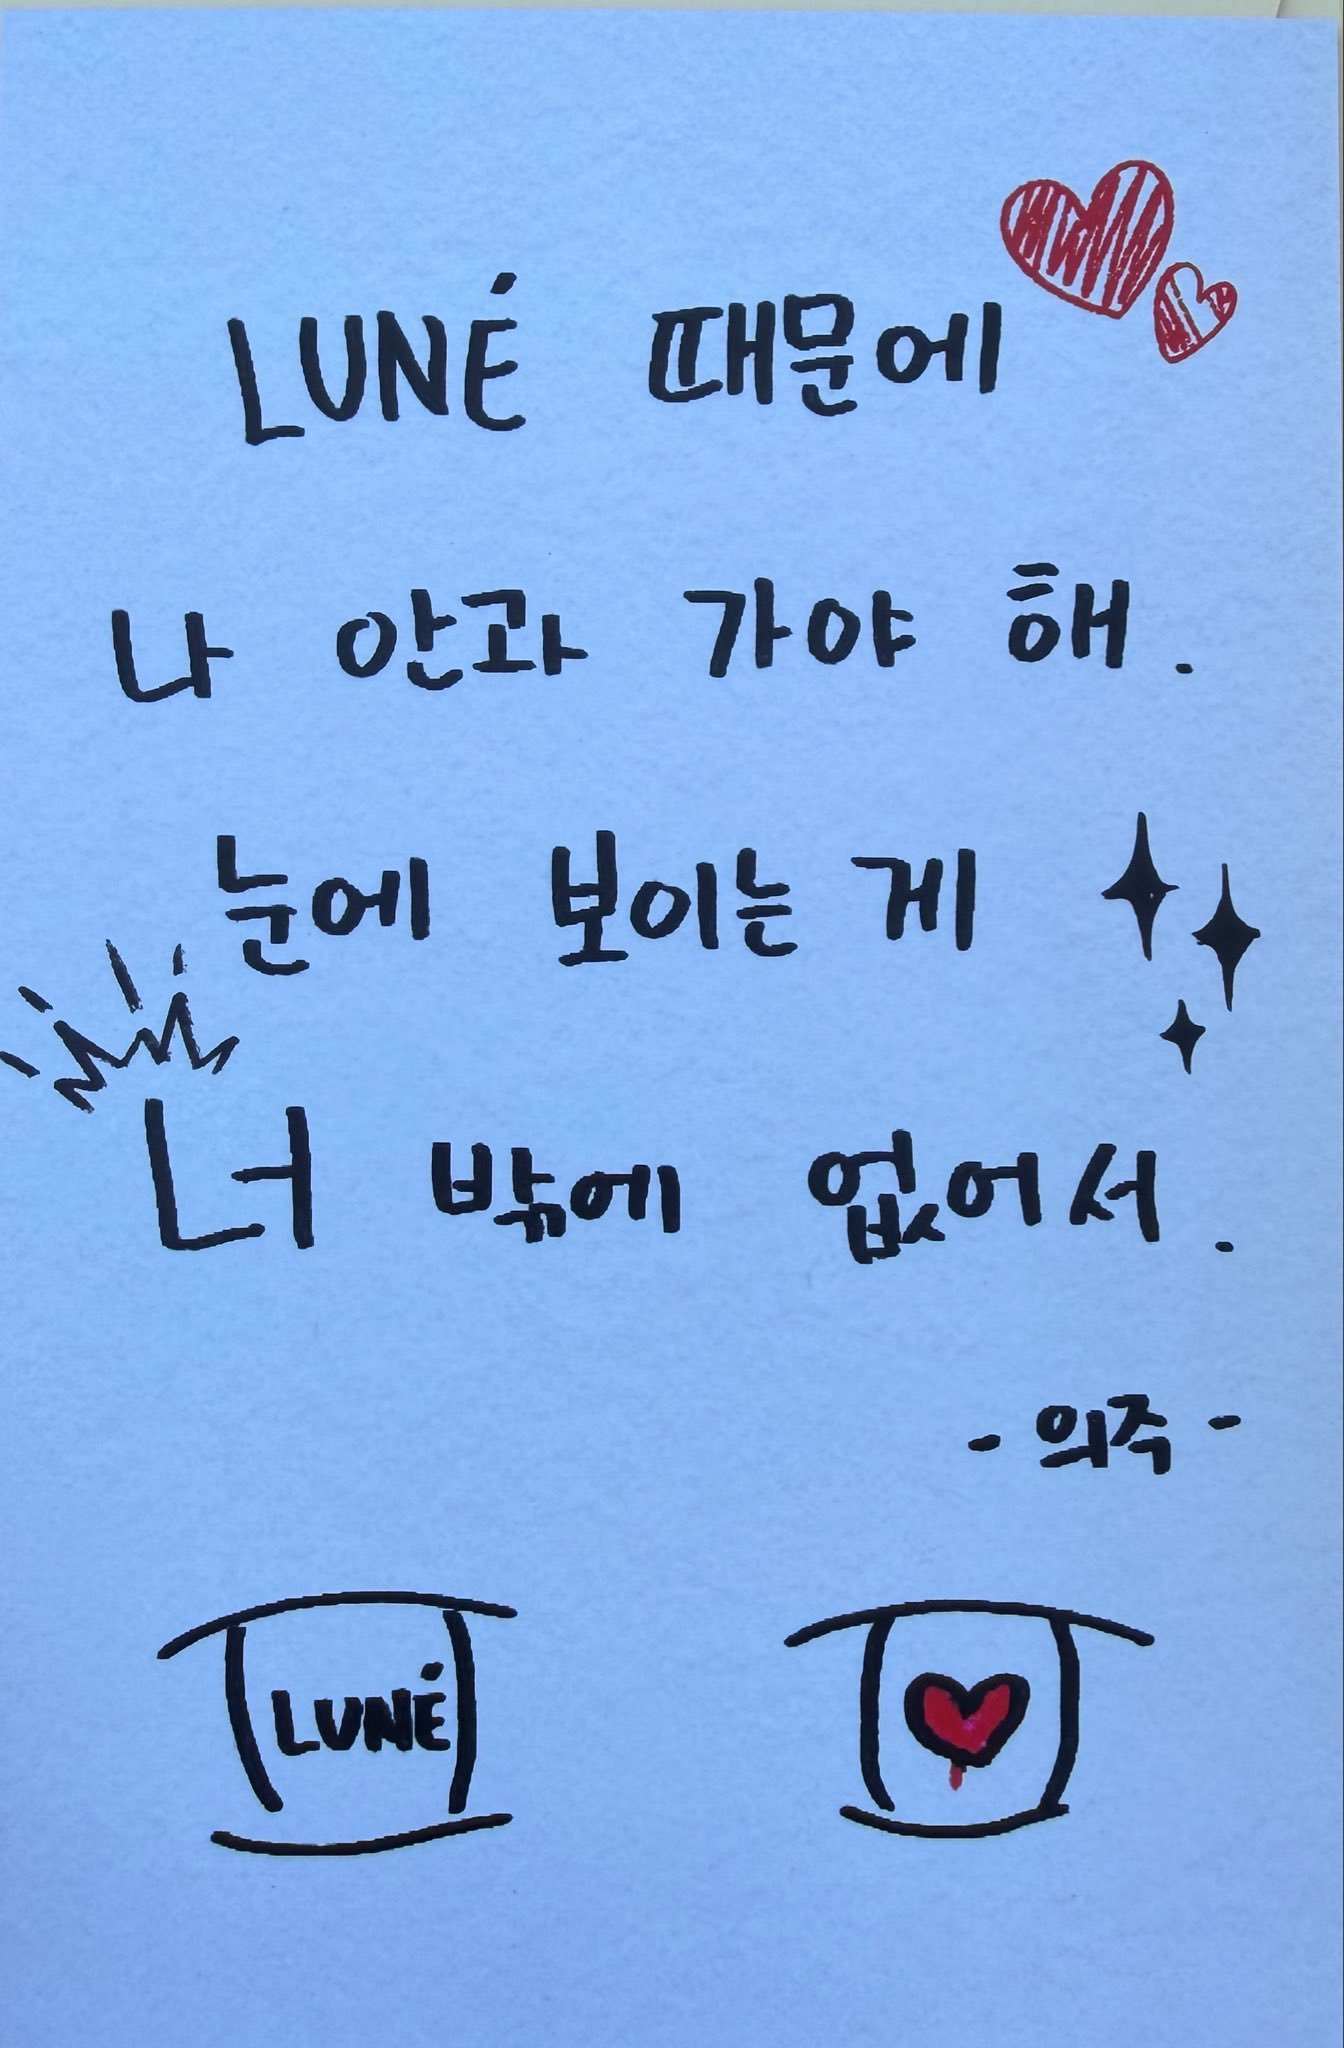 LUNÉ 때문에
나 안과 가야 해.
눈에 보이는 게
너 밖에 없어서.
- 의주 -
LUNÉ